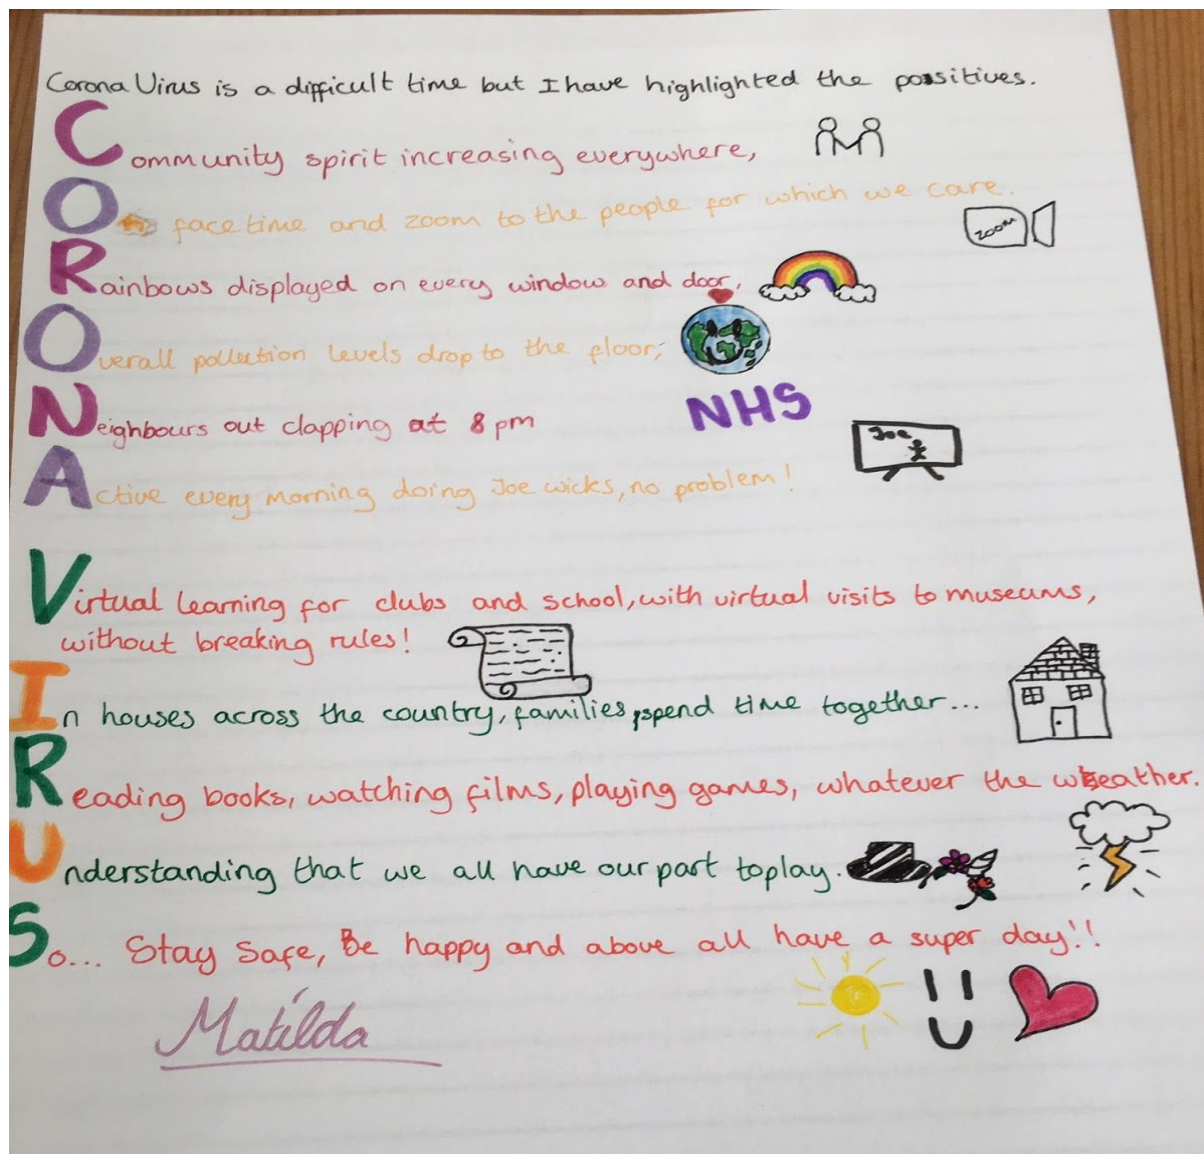 Corona Virus is a difficult time but I have highlighted the possitives.
Community spirit increasing everywhere,
O face time and zoom to the people for which we care.
zoom
Rainbows displayed on every window and door,
Overall pollution levels drop to the floor;
NHS
Neighbours out clapping at 8 pm
Joe
Active every morning doing Joe wicks, no problem!
Virtual learning for clubs and school, with virtual visits to museums,
without breaking rules!
In houses across the country, families, spend time together...
Reading books, watching films, playing games, whatever the weather.
Understanding that we all have our part toplay.
So... Stay Safe, Be happy and above all have a super day!!
Matilda